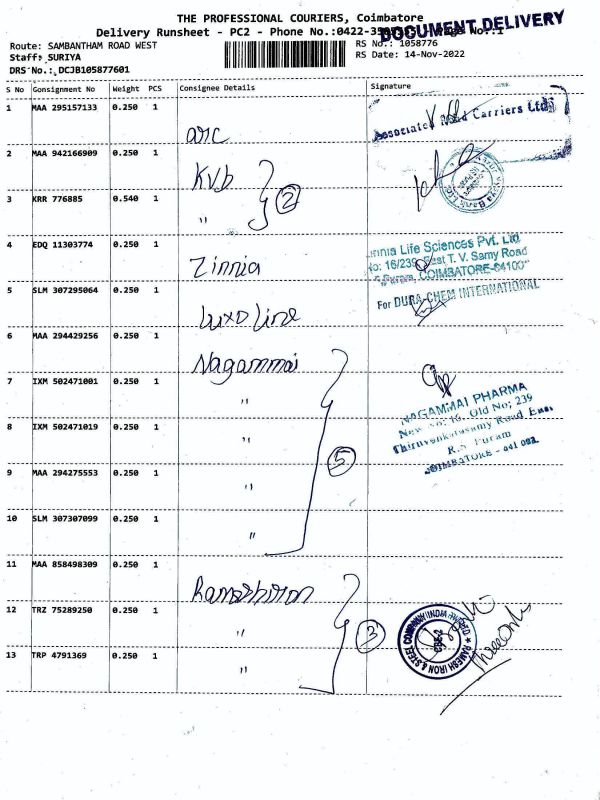 THE PROFESSIONAL COURIERS, Coimbatore
DOCUMENT DELIVERY
Delivery Runsheet - PC2 - Phone No.:0422-
Route: SAMBANTHAM ROAD WEST
RS No.: 1058776
Staff: SURIYA
RS Date: 14-Nov-2022
DRS No.: DCJB105877601
S No Consignment No Weight PCS Consignee Details Signature
1 MAA 295157133 0.250 1 arc
Associated Road Carriers Ltd
2 MAA 942166909 0.250 1 KVb
3 KRR 776885 0.540 1 " 2
4 EDQ 11303774 0.250 1 Zinnia
Zinnia Life Sciences Pvt. Ltd
No: 16/239, East T. V. Samy Road
R.S. Puram, COIMBATORE-
5 SLM 307295064 0.250 1 Luxo line
For DURA-CHEM INTERNATIONAL
6 MAA 294429256 0.250 1 Nagammai
7 IXM 502471001 0.250 1 "
NAGAMMAI PHARMA
New No: 16, Old No; 239
Thiruvenkatasamy Road East
R.S. Puram
COIMBATORE - 641 002.
8 IXM 502471019 0.250 1 "
9 MAA 294275553 0.250 1 " 5
10 SLM 307307099 0.250 1 "
11 MAA 858498309 0.250 1
12 TRZ 75289250 0.250 1 " 3
RAMESH IRON & STEEL COMPANY (INDIA PRIVATE)
CBE-2
13 TRP 4791369 0.250 1 "